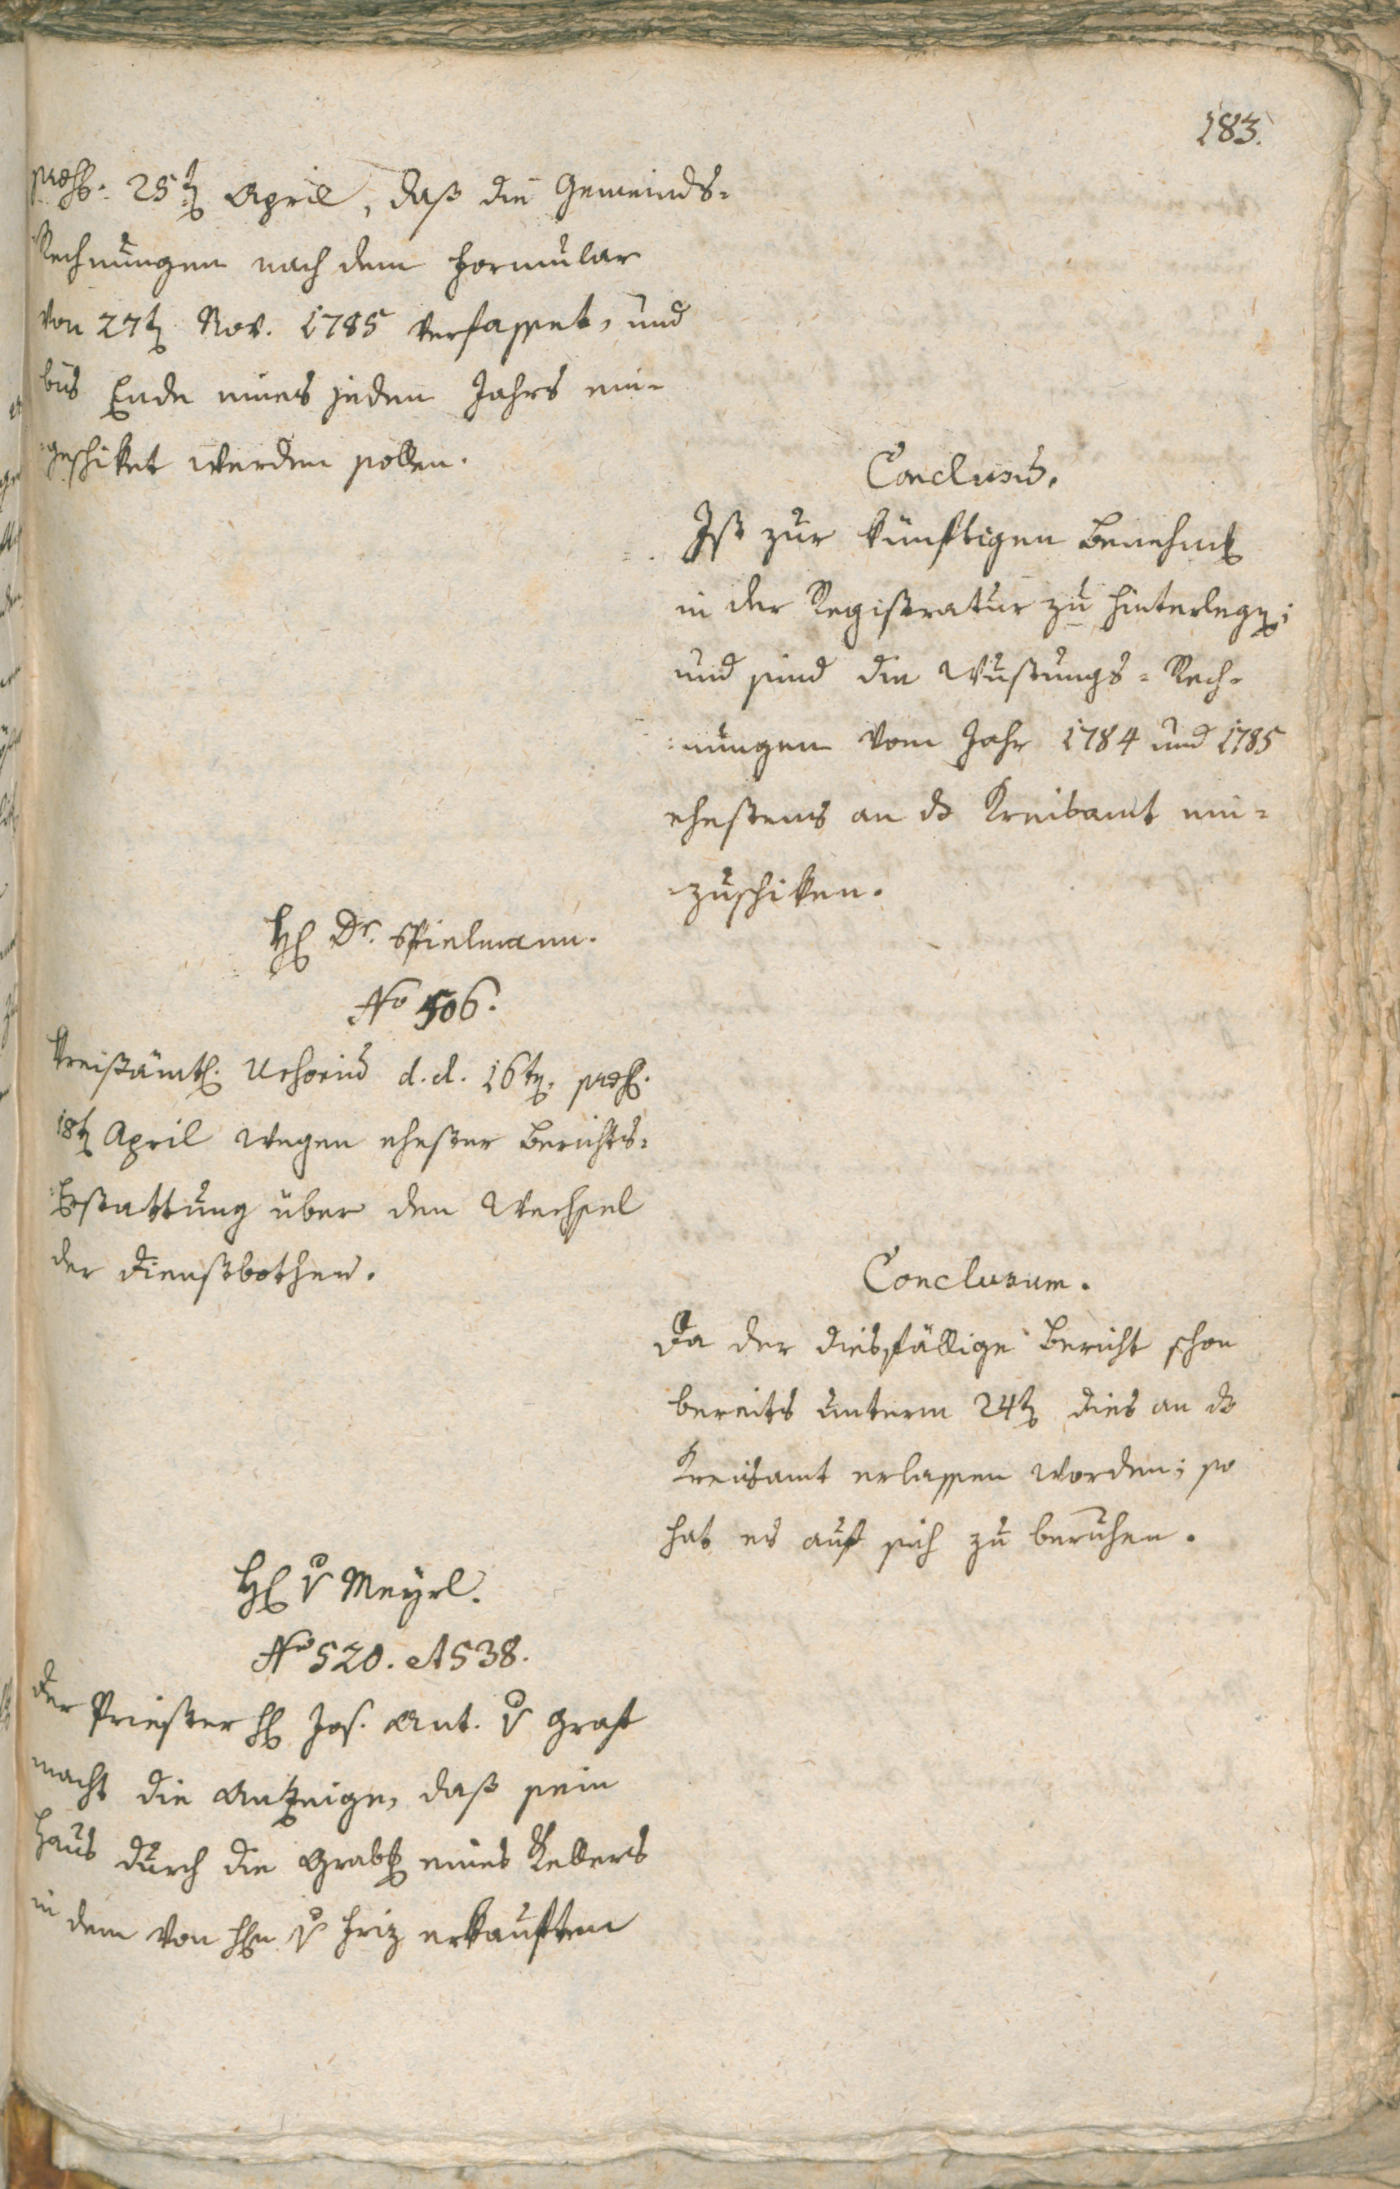 183.
25t April, daß die Gemeinds=
Rechnungen nach dem Formular
von 27t Nov. 1785 verfasset, und
bis Ende eines jeden Jahrs ein=
geschiket werden sollen.
Conclusū.
Ist zur künftigen Benehm
in der Registratur zu hinterleg;
und sind die Wustungs=Rech=
=nungen vom Jahr 1784 und 1785
ehestens an ds Kreisamt ein=
=zuschiken.
H Dr. Spielmann.
No 506.
Kreisämtl. d. d. 16t.
18t April wegen ehester Berichts=
Erstattung über den Wechsel
der Dienstbothen.
Conclusum.
Da der diesfällige Bericht schon
bereits unterm 24t dies an ds
Kreisamt erlassen worden; so
hat es auf sich zu beruhen.
H v Meyrl.
No 520. A 538.
Der Priester H Jos. Ant. v Graft
macht die Anzeige, daß sein
Haus durch die Grab eines Kellers
in dem von Hn v Friz erkauften